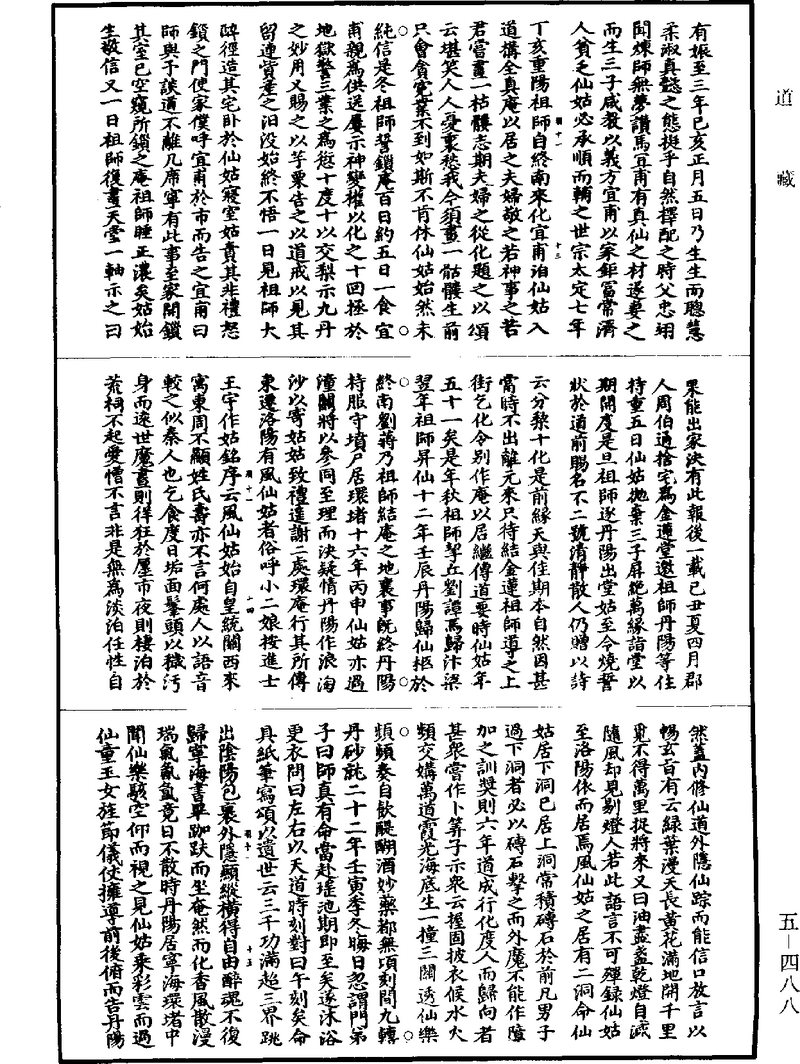 道藏
有娠至三年己亥正月五日乃生生而聰慧
柔淑真懿之態挺乎自然擇配之時父忠翊
聞煉師無夢讚馬宜甫有真仙之材遂妻之
而生三子咸教以義方宜甫以家鉅富常濟
人貧乏仙姑必承順而輔之世宗太定七年
丁亥重陽祖師自終南來化宜甫洎仙姑入
道搆全真庵以居之夫婦敬之若神事之若
君嘗畫一枯髏志期夫婦之從化題之以頌
云堪笑人人憂裏愁我今須畫一骷髏生前
只會貪冤業不到如斯不肯休仙姑始然未
純信是冬祖師誓鎖庵百日約五日一食宜
甫親為供送屢示神變權以化之十回極於
地獄警三業之為愆十度十以交梨示九丹
之妙用又賜之以芋栗告之以道戒以見其
留連貲產之汨没始終不悟一日見祖師大
醉徑造其宅卧於仙姑寢室姑責其非禮怒
鎖之門使家僕呼宜甫於市而告之宜甫曰
師與予談道不離几席寧有此事至家開鎖
其室已空窺所鎖之庵祖師睡正濃矣姑始
生敬信又一日祖師復畫天堂一軸示之曰
果能出家決有此報後一載己丑夏四月郡
人周伯通捨宅為金蓮堂邀祖師丹陽等住
持重五日仙姑拋棄三子屏絶萬緣詣堂以
期開度是旦祖師遂丹陽出堂姑至令燒誓
狀於道前賜名不二號清靜散人仍贈以詩
云分棃十化是前緣天與佳期本自然因甚
當時不出離元來只待結金蓮祖師導之上
街乞化令别作庵以居繼傳道要時仙姑年
五十一矣是年秋祖師挈丘劉譚馬歸汴梁
翌年祖師昇仙十二年壬辰丹陽歸仙柩於
終南劉蔣乃祖師結庵之地襄事既終丹陽
持服守墳尸居環堵十六年丙申仙姑亦過
潼關將以參同至理而決疑情丹陽作浪淘
沙以寄姑姑致禮遠謝二處環庵行其所傳
東遷洛陽有風仙姑者俗呼小二娘按進士
王宇作姑銘序云風仙姑姑自皇統關西來
寓東周不顯姓氏壽亦不言何處人以語音
較之似秦人也乞食度日垢面鬅頭以穢污
身而遠世魔晝則徉狂於廛市夜則棲泊於
荒祠不起愛憎不言非是無為淡泊任性自
然蓋内修仙道外隱仙踪而能信口放言以
暢玄旨有云緑葉漫天長黃花滿地開千里
覓不得萬里捉將來又曰油盡盞乾燈自滅
隨風却見剔燈人若此語言不可殫録仙姑
至洛陽依而居焉風仙姑之居有二洞命仙
姑居下洞已居上洞常積磚石於前凡男子
過下洞者必以磚石擊之而外魔不能作障
加之訓獎則六年道成行化度人而歸向者
甚衆嘗作卜筭子示衆云握固披衣候水火
頻交媾萬道霞光海底生一撞三關透仙樂
頻頻奏自飲醍醐酒妙藥都無頃刻間九轉
丹砂就二十二年壬寅季冬晦日忽謂門弟
子曰師真有命當赴瑶池期即至矣遂沐浴
更衣問曰左右以天道時刻對曰午刻矣命
具紙筆寫頌以遺世云三千功滿超三界跳
出陰陽包裹外隱顯縱橫得自由醉魂不復
歸寧海書畢跏趺而坐奄然而化香風散漫
瑞氣氤氲竟日不散時丹陽居寧海環堵中
聞仙樂駭空仰而視之見仙姑乘彩雲而過
仙童玉女旌節儀仗擁導前後俯而告丹陽
五－四八八